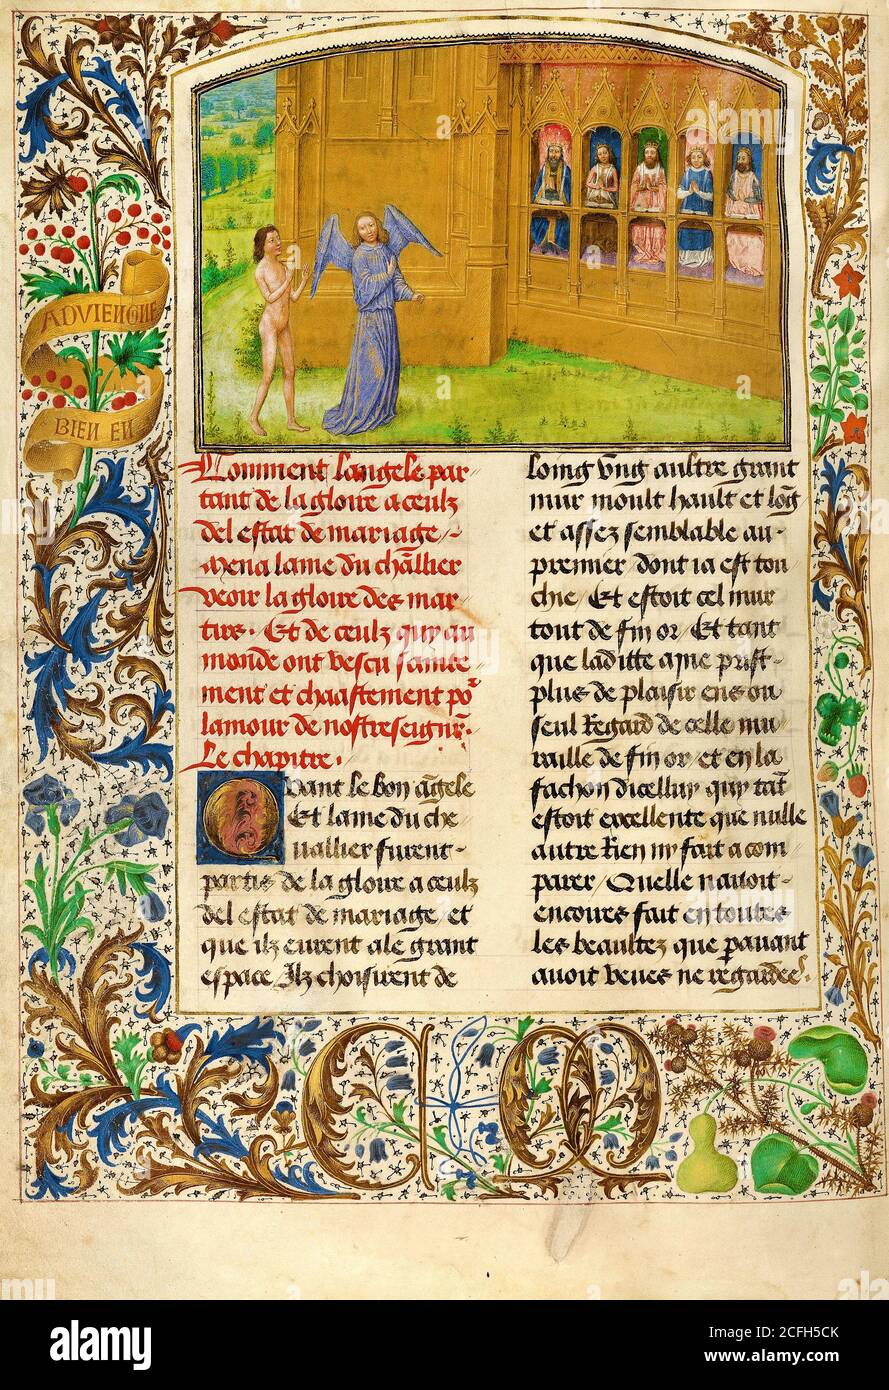 ADVIENGNE
BIEN EN
Comment langele par
tant de la gloire a ceulz
del estat de mariage
mena lame du chãllier
veoir la gloire des mar
tirs. Et de ceulz quy au
monde ont vescu saincte
ment et chaastement põ
lamour de nostreseignr̃.
Le chapitre.
Quant le bon ãgele
Et lame du che
uallier furent
partis de la gloire a ceulz
del estat de mariage, et
que ilz eurent ale grant
espace, Ilz choisirent de
loing vng aultre grant
mur moult hault et lõg
et assez semblable au
premier dont ia est tou
chie, Et estoit cel mur
tout de fin or, Et tant
que laditte ame prist
plus de plaisir ens ou
seul Regard de celle mu
raille de fin or, et en la
fachon dicelluy quy tãt
estoit excellente que nulle
autre Rien ny fait a com
parer, Quelle nauoit
encoures fait en toutes
les beaultez que p auant
auoit veues ne regardee.
alamy
Image ID: 2CFH5CK
www.alamy.com